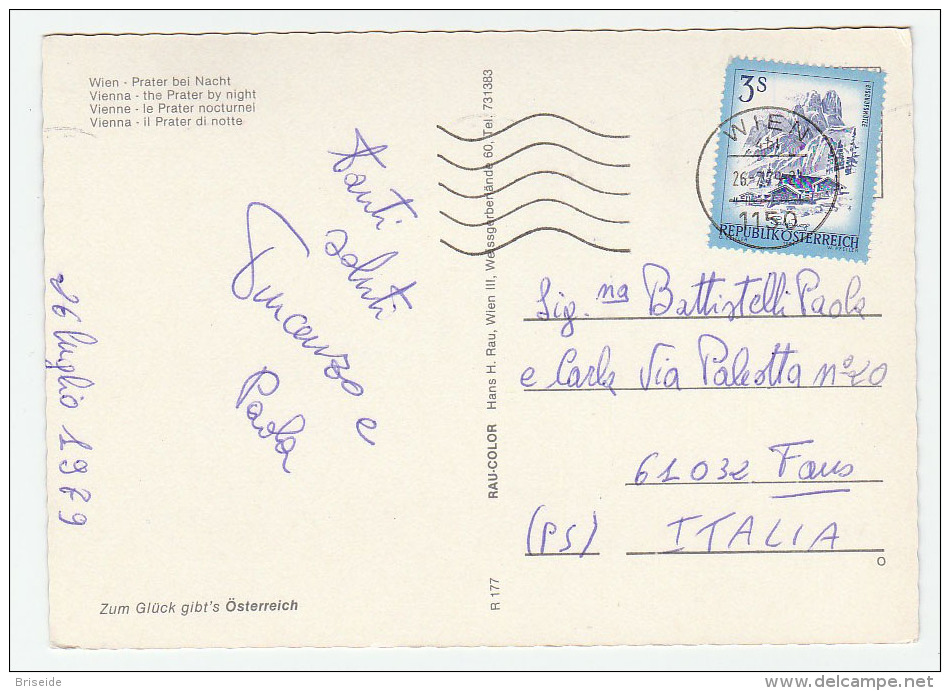 Wien - Prater bei Nacht
Vienna - the Prater by night
Vienne - le Prater nocturnel
Vienna - il Prater di notte
tanti
saluti
Vincenzo e
Paola
26 luglio 1979
Zum Glück gibt's Österreich
RAU-COLOR Hans H. Rau, Wien III, Weissgerberlände 60, Tel. 731383
R 177
3S
BISCHOFSMÜTZE
REPUBLIK ÖSTERREICH
WIEN
1150
Sig.na Battistelli Paola
e Carla Via Paleotta n° 20
61032 Fano
(PS) ITALIA
O
Briseide
www.delcampe.net